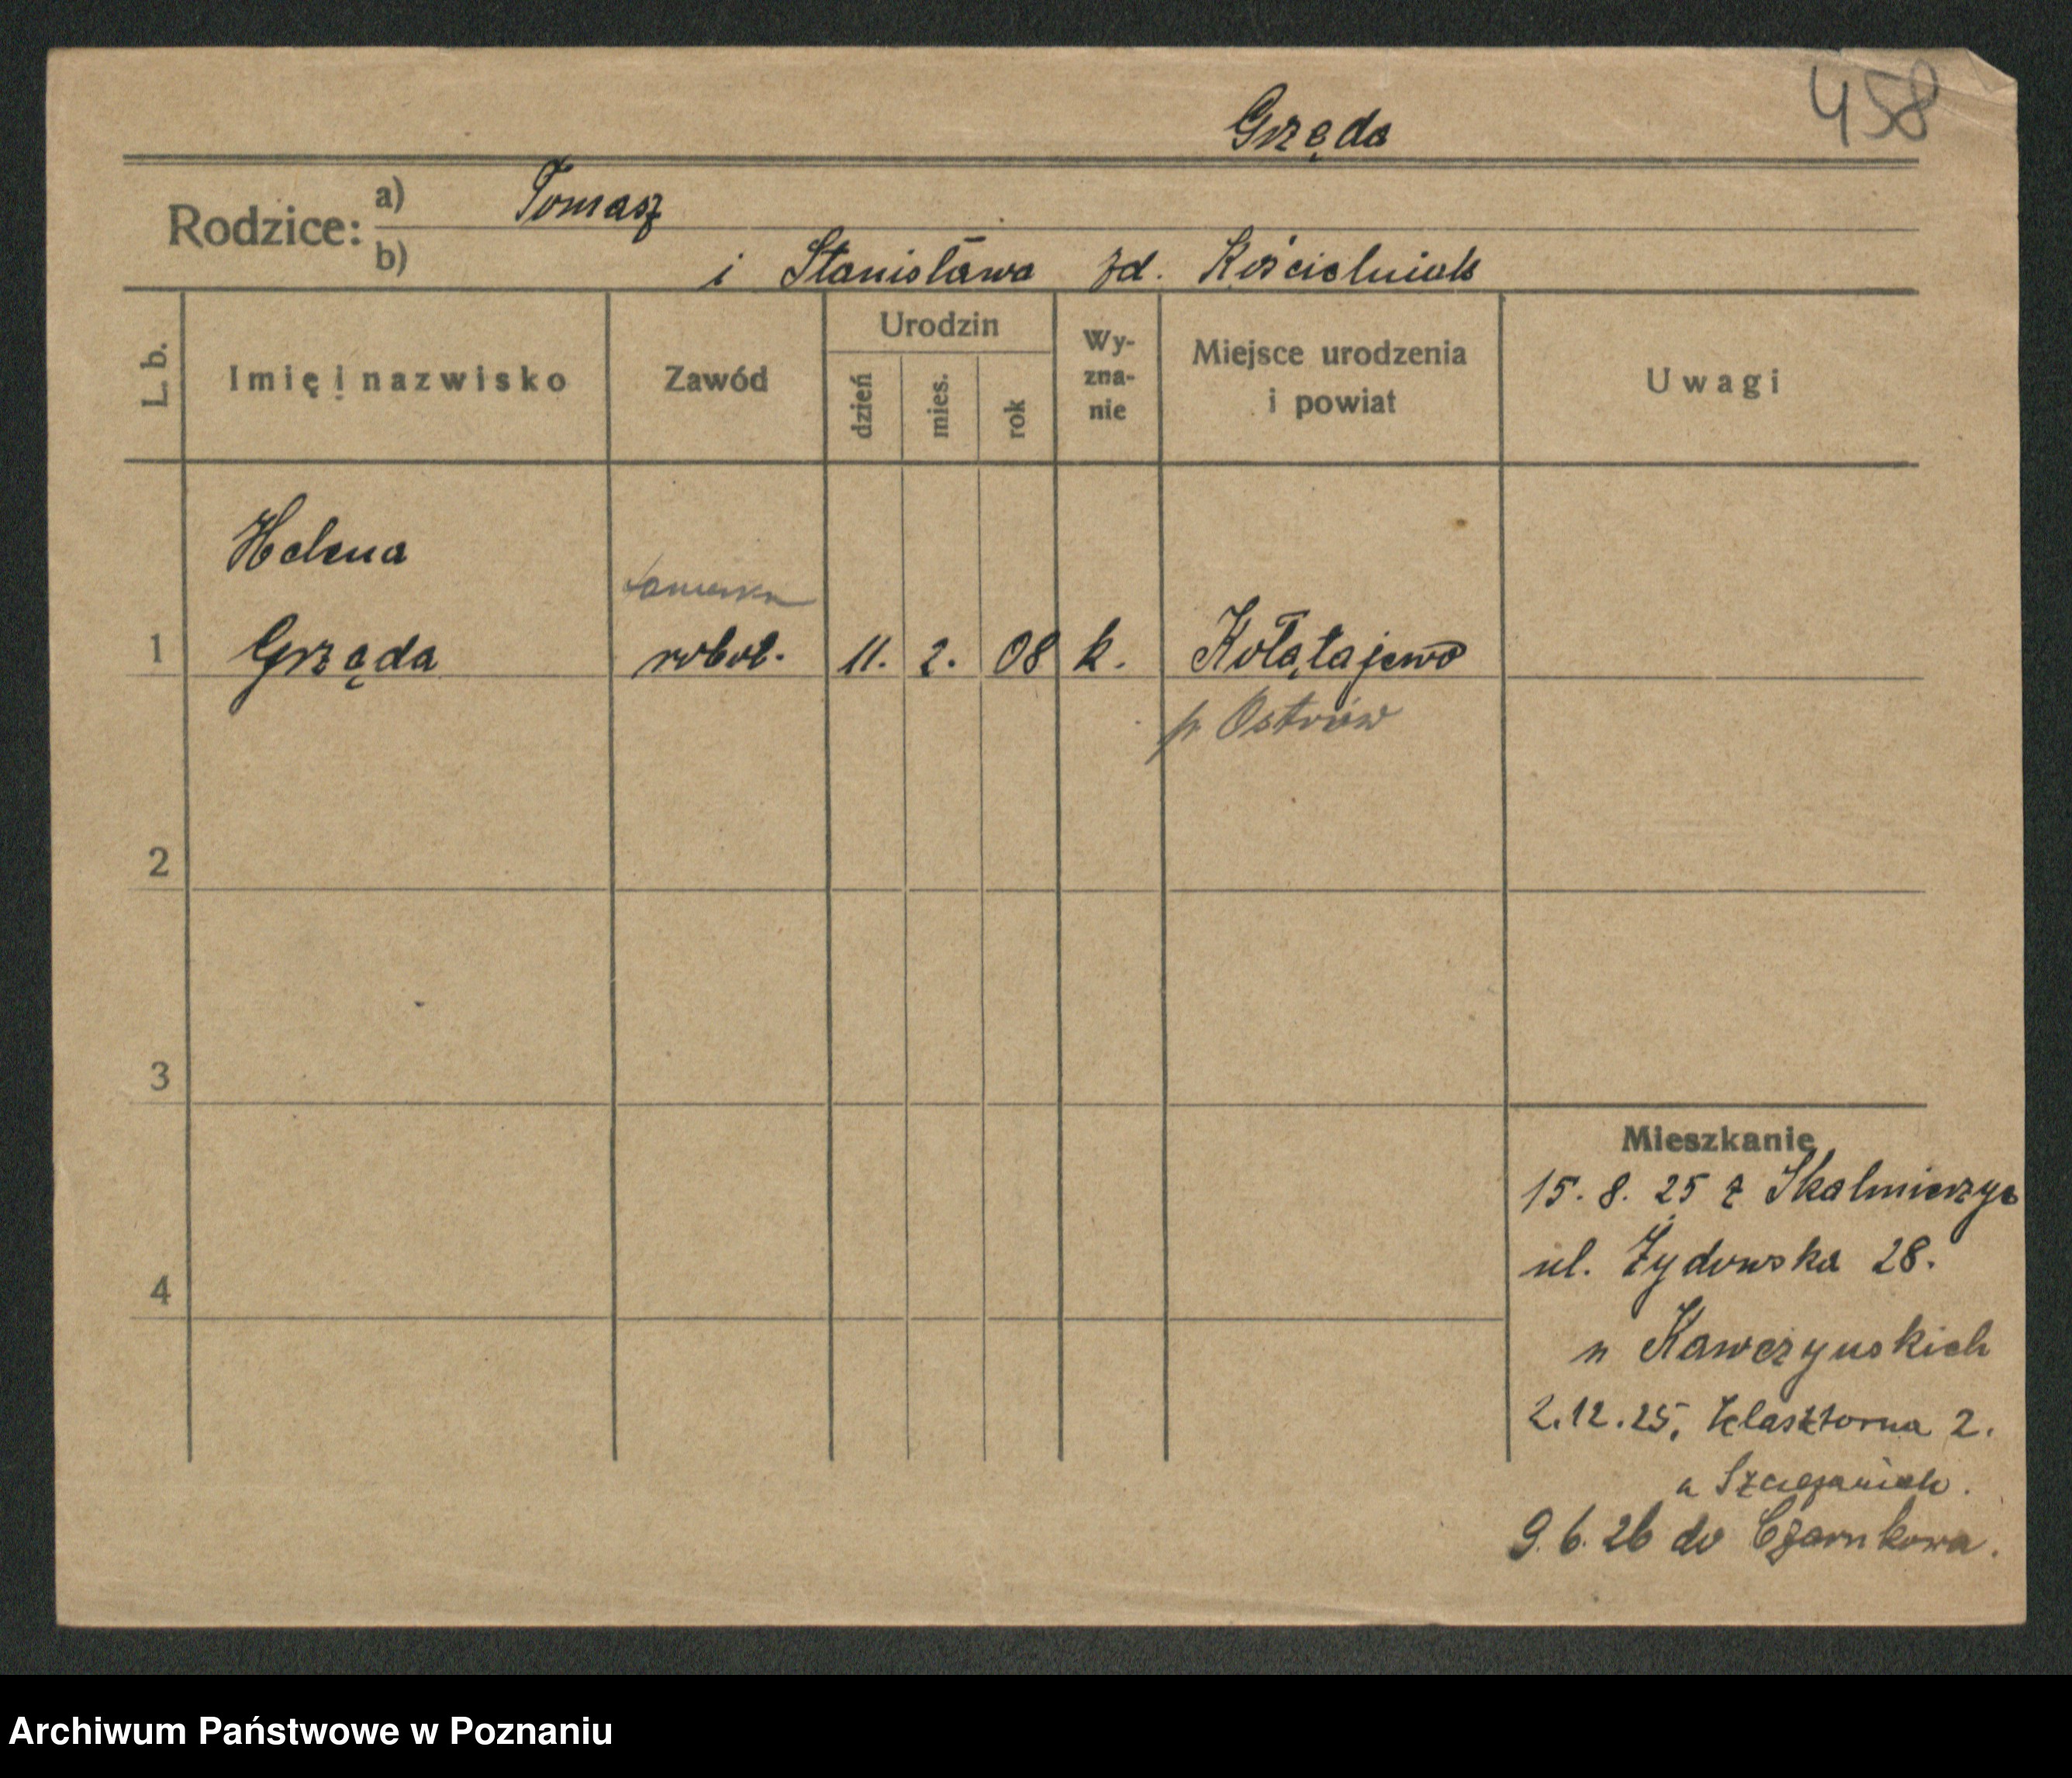 458
Grzęda
Rodzice: a) Tomasz
b) i Stanisława zd. Kościelniak
L. b.
Imię i nazwisko
Zawód
Urodzin
dzień
mies.
rok
Wy-
zna-
nie
Miejsce urodzenia
i powiat
Uwagi
Helena
1 Grzęda robot. 11. 2. 08 k. Kołątajewo
p. Ostrów
2
3
4
Mieszkanie
15. 8. 25 z Skalmierzyc
ul. Żydowska 28.
u Kawczynskich
2.12.25, Klasztorna 2.
u
9.6.26 do Czarnkowa.
Archiwum Państwowe w Poznaniu